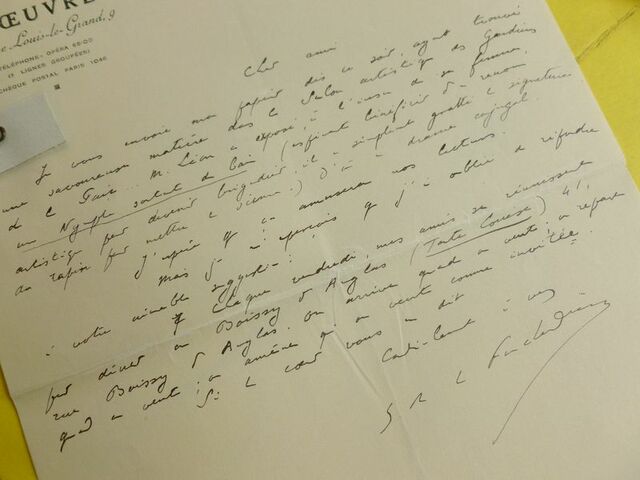 ŒUVRE
e Louis-le-Grand, 9
TÉLÉPHONE: OPÉRA 65-00
(3 LIGNES GROUPÉES)
CHÈQUE POSTAL PARIS 1046
Cher ami
Je vous envoie mon papier dès ce soir, ayant trouvé
une savoureuse matière dans le Salon artistique des Gardiens
de la Paix. M. Léon a exposé, à l'insu de sa femme,
une Nymphe sortant du bain (espérant bénéficier du renom
artistique pour devenir brigadier, il a simplement gratté la signature
du rapin pour mettre la sienne.) D'où drame conjugal.
J'espère que ça amusera vos lecteurs.
Mais je m'aperçois que j'ai oublié de répondre
à votre aimable
Chaque vendredi, mes amis se réunissent
pour dîner au Boissy d'Anglas (Tante Louise) 41,
rue Boissy d'Anglas. On arrive quand on veut, on repart
quand on veut; on amène qui on veut comme invitée.
Si le cœur vous en dit
Cordialement à vous
G R